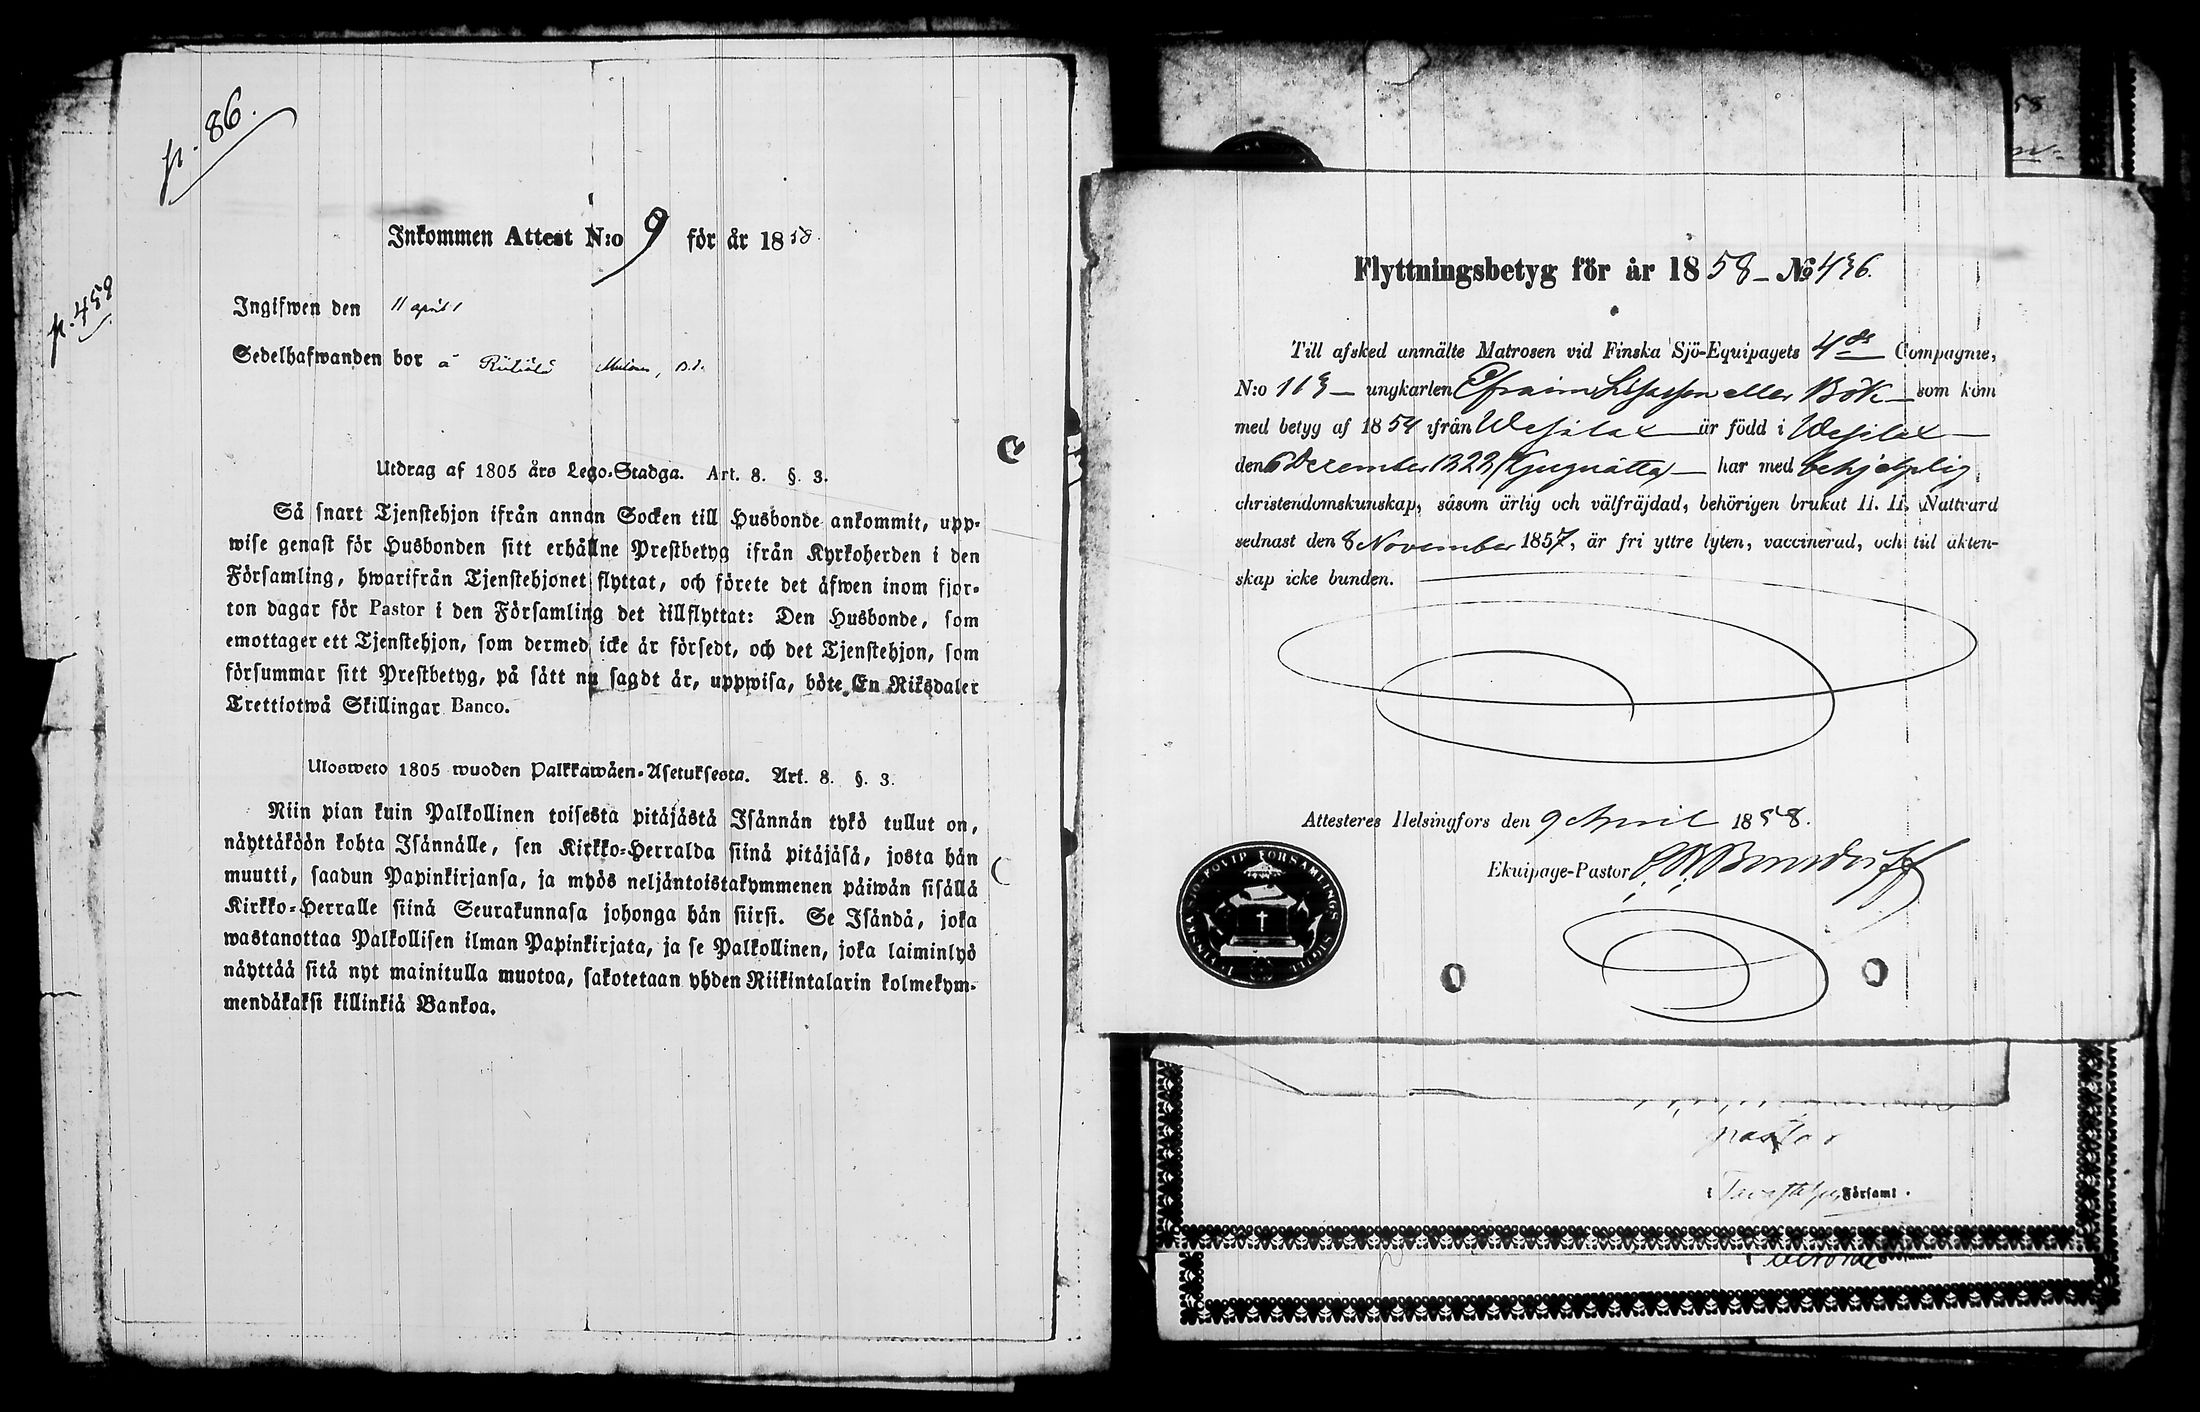 p. 86.
p. 458
Inkommen Attest N:o 9 för år 1858.
Ingifwen den 11 april
Sedelhafwanden bor å
Utdrag af 1805 års Lego-Stadga. Art. 8. §. 3.
Så snart Tjenstehjon ifrån annan Socken till Husbonde ankommit, upp-
wise genast för Husbonden sitt erhållne Prestbetyg ifrån Kyrkoherden i den
Församling, hwarifrån Tjenstehjonet flyttat, och förete det äfwen inom fjor-
ton dagar för Pastor i den Församling det tillflyttat: Den Husbonde, som
emottager ett Tjenstehjon, som dermed icke är försedt, och det Tjenstehjon, som
försummar sitt Prestbetyg, på sätt nu sagdt är, uppwisa, böte En Riksdaler
Trettiotwå Skillingar Banco.
Ulosweto 1805 wuoden Palkkawäen-Asetuksesta. Art. 8. §. 3.
Niin pian kuin Palkollinen toisesta pitäjästä Isännän tykö tullut on,
näyttäköön kohta Isännälle, sen Kirkko-Herralda siinä pitäjäsä, josta hän
muutti, saadun Papinkirjansa, ja myös neljäntoistakymmenen päiwän sisällä
Kirkko-Herralle siinä Seurakunnasa johonga hän siirsi. Se Isändä, joka
wastanottaa Palkollisen ilman Papinkirjata, ja se Palkollinen, joka laiminlyö
näyttää sitä nyt mainitulla muotoa, sakotetaan yhden Riikintalarin kolmekym-
mendäkaksi killinkiä Bankoa.
58
Flyttningsbetyg för år 1858 - No 436.
Till afsked anmälte Matrosen vid Finska Sjö-Equipagets 4de Compagnie,
N:o 113 - ungkarlen Efraim eller Bök - som kom
med betyg af 1854 ifrån Wesilax är född i Wesilax
den 6 December 1822 har med behjelplig
christendomskunskap, såsom ärlig och välfräjdad, behörigen brukat H. H. Nattvard
sednast den 8 November 1857, är fri yttre lyten, vaccinerad, och till äkten-
skap icke bunden.
Attesteres Helsingfors den 9 April 1858.
Ekuipage-Pastor
FINSKA SJÖ-EQVIP. FÖRSAMLINGS SIGILL
Pastor
i Församl.